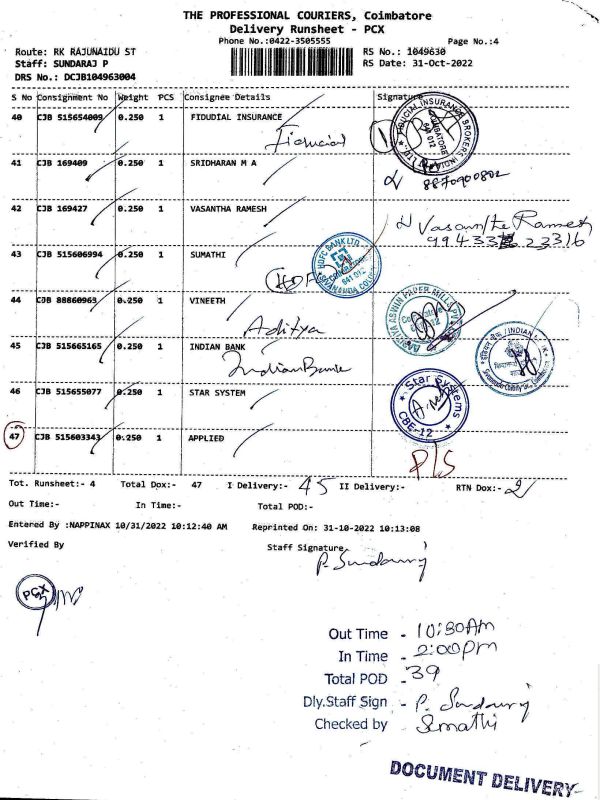 THE PROFESSIONAL COURIERS, Coimbatore
Delivery Runsheet - PCX
Phone No.:0422-3505555 Page No.:4
Route: RK RAJUNAIDU ST RS No.: 1049630
Staff: SUNDARAJ P RS Date: 31-Oct-2022
DRS No.: DCJB104963004
S No Consignment No Weight PCS Consignee Details Signature
40 CJB 515654009 0.250 1 FIDUDIAL INSURANCE
Fiducial
FIDUCIAL INSURANCE BROKERS INDIA
COIMBATORE
641 012
41 CJB 169409 0.250 1 SRIDHARAN M A
8870900802
42 CJB 169427 0.250 1 VASANTHA RAMESH
Vasantha Ramesh
43 CJB 515606994 0.250 1 SUMATHI
HDFC BANK LTD
641 012
HDFC
44 CJB 88860963 0.250 1 VINEETH
Aditya
AADITYA ASWIN PAPER MILLS
45 CJB 515665165 0.250 1 INDIAN BANK
Indian Bank
46 CJB 515655077 0.250 1 STAR SYSTEM
Star Systems
CBE-12
47 CJB 515603343 0.250 1 APPLIED
P/S
Tot. Runsheet:- 4 Total Dox:- 47 I Delivery:- 45 II Delivery:- RTN Dox:- 2
Out Time:- In Time:- Total POD:-
Entered By :NAPPINAX 10/31/2022 10:12:40 AM Reprinted On: 31-10-2022 10:13:08
Verified By Staff Signature
P. Sundarraj
PCX
Out Time - 10:30Am
In Time - 2:00pm
Total POD - 39
Dly.Staff Sign - P. Sundarraj
Checked by - Sumathi
DOCUMENT DELIVERY